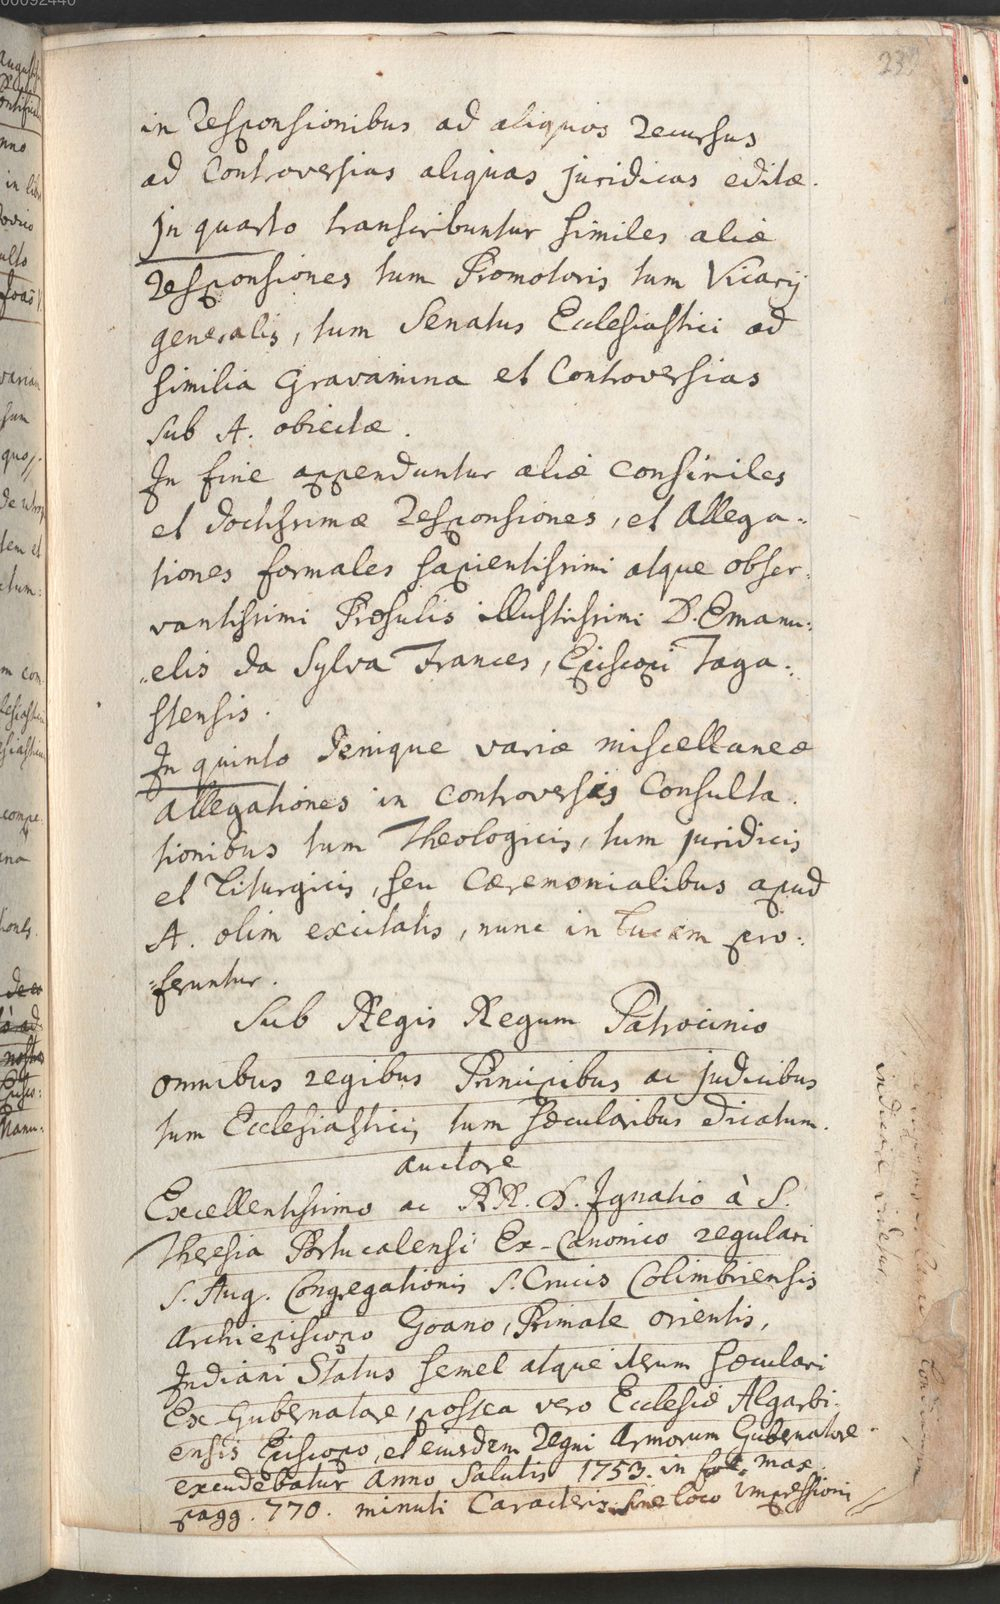 00092440
23
in Responsionibus ad aliquos Recursus
ad Controversias aliquas juridicas editæ.
jn quarto transcribuntur similes aliæ
Responsiones tum Promotoris tum Vicarij
generalis, tum Senatus Ecclesiastici ad
similia Gravamina et Controversias
sub A. obiectæ.
In fine appenduntur aliæ consimiles
et doctissimæ Responsiones, et Allega-
tiones formales sapientissimi atque obser-
vantissimi Præsulis illustrissimi D. Emanu-
elis da Sylva Frances, Episcopi Taga-
stensis.
In quinto denique variæ miscellaneæ
Allegationes in controversis Consulta-
tionibus tum Theologicis, tum juridicis
et Liturgicis, seu Cæremonialibus apud
A. olim excitatis, nunc in lucem pro-
feruntur.
Sub Regis Regum Patrocinio
omnibus regibus Principibus ac judicibus
tum Ecclesiasticis tum sæcularibus dicatum.
auctore
Excellentissimo ac RR. D. Jgnatio à S.
Theresia Portucalensi Ex-Canonico regulari
S. Aug. Congregationis S. Crucis Colimbriensis
Archiepiscopo Goano, Primate orientis,
Indiani Status semel atque iterum sæculari
Ex-Gubernatore, postea vero Ecclesiæ Algarbi-
ensis Episcopo, et eiusdem Regni Armorum Gubernatore.
excudebatur Anno Salutis 1753. in fol. max.
pagg. 770. minuti Caracteris sine loco impressioni